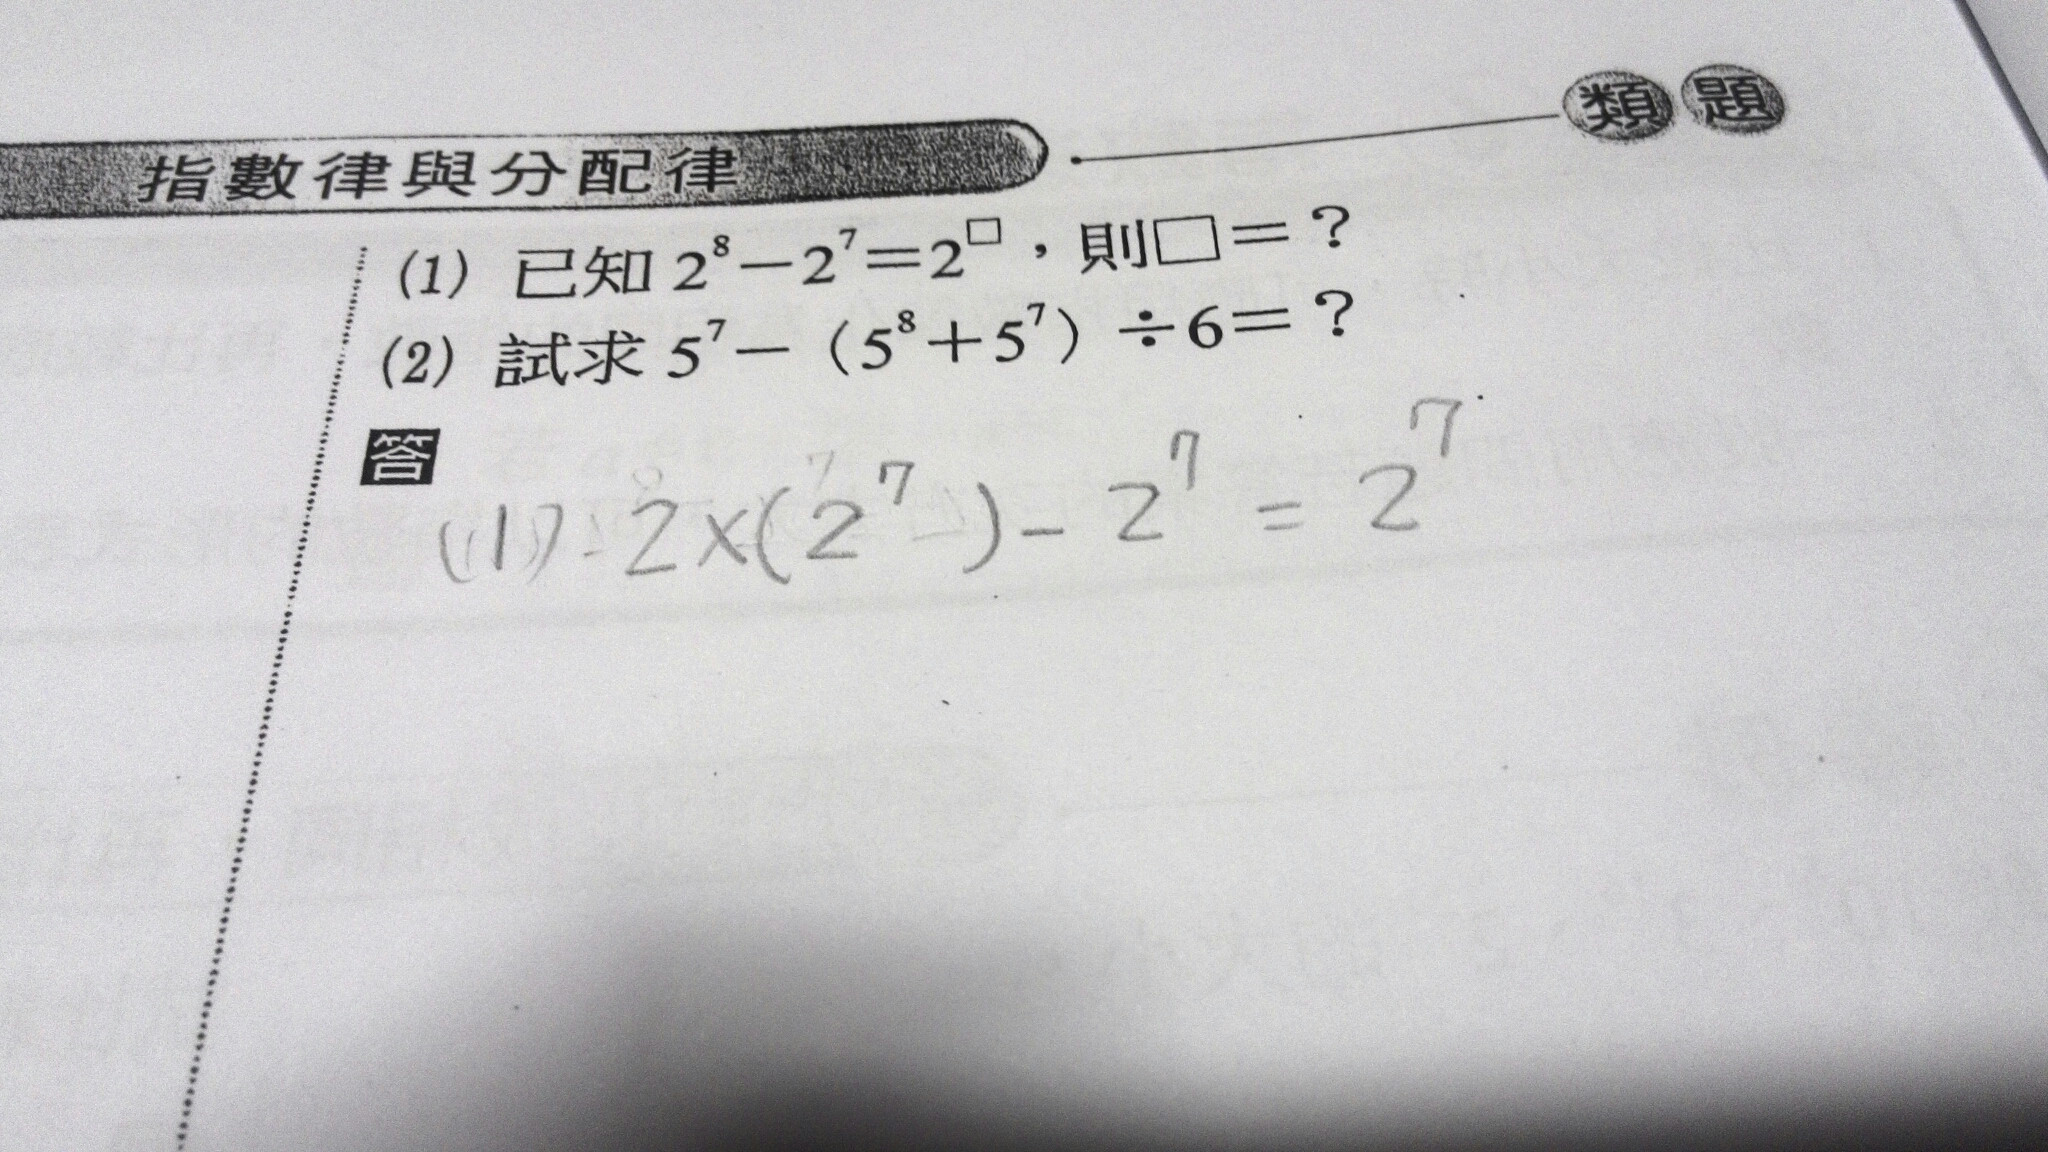 類題
指數律與分配律
(1) 已知 2⁸－2⁷＝2^□，則□＝？
(2) 試求 5⁷－（5⁸＋5⁷）÷6＝？
答
(1) 2×(2⁷)-2⁷=2⁷